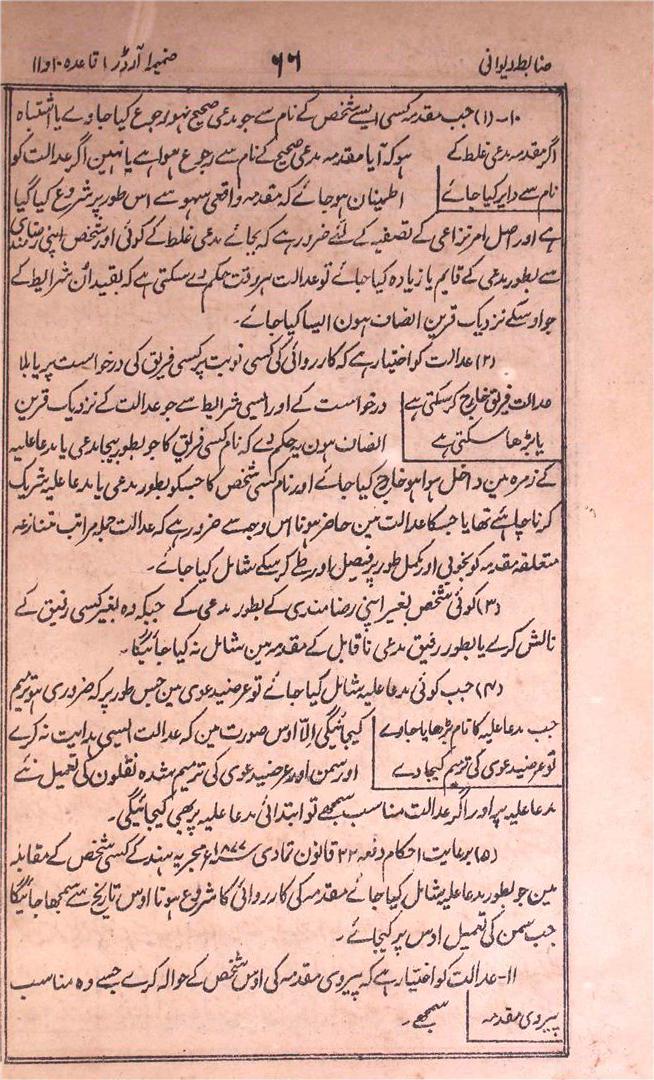 ضابطہ دیوانی ۶۶ ضمیمہ ۱ آرڈر ۱ قاعدہ ۱۰ و ۱۱
۱۰-(۱) جب مقدمہ کسی ایسے شخص کے نام سے جو مدعی صحیح نہو رجوع کیا جاوے یا اشتباہ
اگر مقدمہ مدعی غلط کے ہو کہ آیا مقدمہ مدعی صحیح کے نام سے رجوع ہوا ہے یا نہین اگر عدالت کو
نام سے دایر کیا جائے اطمینان ہو جائے کہ مقدمہ واقعی سہو سے اس طور پر شروع کیا گیا
ہے اور اصل امر نزاعی کے تصفیہ کے لئے ضرور ہے کہ بجائے مدعی غلط کے کوئی اور شخص اپنی رضامندی
سے بطور مدعی کے قایم یا زیادہ کیا جائے تو عدالت ہر وقت حکم دے سکتی ہے کہ بقید ان شرایط کے
جو اوسکے نزدیک قرین انصاف ہون ایسا کیا جائے۔
(۲) عدالت کو اختیار ہے کہ کارروائی کی کسی نوبت پر کسی فریق کی درخواست پر یا بلا
عدالت فریق خارج کر سکتی ہے درخواست کے اور ایسی شرایط سے جو عدالت کے نزدیک قرین
یا بڑھا سکتی ہے انصاف ہون یہ حکم دے کہ نام کسی فریق کا جو بطور بیجا مدعی یا مدعا علیہ
کے زمرہ مین داخل ہوا ہو خارج کیا جائے اور نام کسی شخص کا جسکو بطور مدعی یا مدعا علیہ شریک
کرنا چاہئے تھا یا جسکا عدالت مین حاضر ہونا اس وجہ سے ضرور ہے کہ عدالت جملہ مراتب متنازعہ
متعلقہ مقدمہ کو بخوبی اور مکمل طور پر فیصل اور طے کر سکے شامل کیا جائے۔
(۳) کوئی شخص بغیر اپنی رضامندی کے بطور مدعی کے جبکہ وہ بغیر کسی رفیق کے
نالش کرے یا بطور رفیق مدعی ناقابل کے مقدمہ مین شامل نہ کیا جائیگا۔
(۴) جب کوئی مدعا علیہ شامل کیا جائے تو عرضیدعوی مین جس طور پر کہ ضروری ہو ترمیم
جب مدعا علیہ کا نام بڑھایا جاوے کیجائیگی الّا اوس صورت مین کہ عدالت ایسی ہدایت نہ کرے
تو عرضیدعوی کی ترمیم کیجادے اور سمن اور عرضیدعوی کی ترمیم شدہ نقلون کی تعمیل نئے
مدعا علیہ پر اور اگر عدالت مناسب سمجھے تو ابتدائی مدعا علیہ پر بھی کیجائیگی۔
(۵) برعایت احکام دفعہ ۲۲ قانون تمادی ۱۸۷۷ء مجریہ ہند کے کسی شخص کے مقابلہ
مین جو بطور مدعا علیہ شامل کیا جائے مقدمہ کی کارروائی کا شروع ہونا اوس تاریخ سے سمجھا جائیگا
جب سمن کی تعمیل اوس پر کیجائے۔
۱۱-عدالت کو اختیار ہے کہ پیروی مقدمہ کی اوس شخص کے حوالہ کرے جسے وہ مناسب
پیروی مقدمہ سمجھے۔